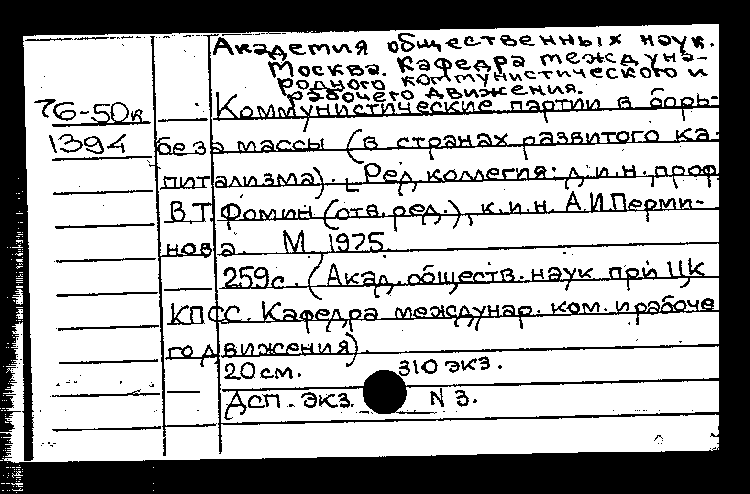 Академия общественных наук.
Москва. Кафедра междуна-
родного коммунистического и
рабочего движения.
76-50к Коммунистические партии в борь-
1394 бе за массы (в странах развитого ка-
питализма). [Ред. коллегия: д.и.н., проф.
В.Т. Фомин (отв. ред.), к.и.н. А.И. Перми-
нова. М, 1975.
259с. (Акад. обществ. наук при ЦК
КПСС. Кафедра междунар. ком. и рабоче
го движения).
20см. 310 экз.
ДСП. экз. N 3.